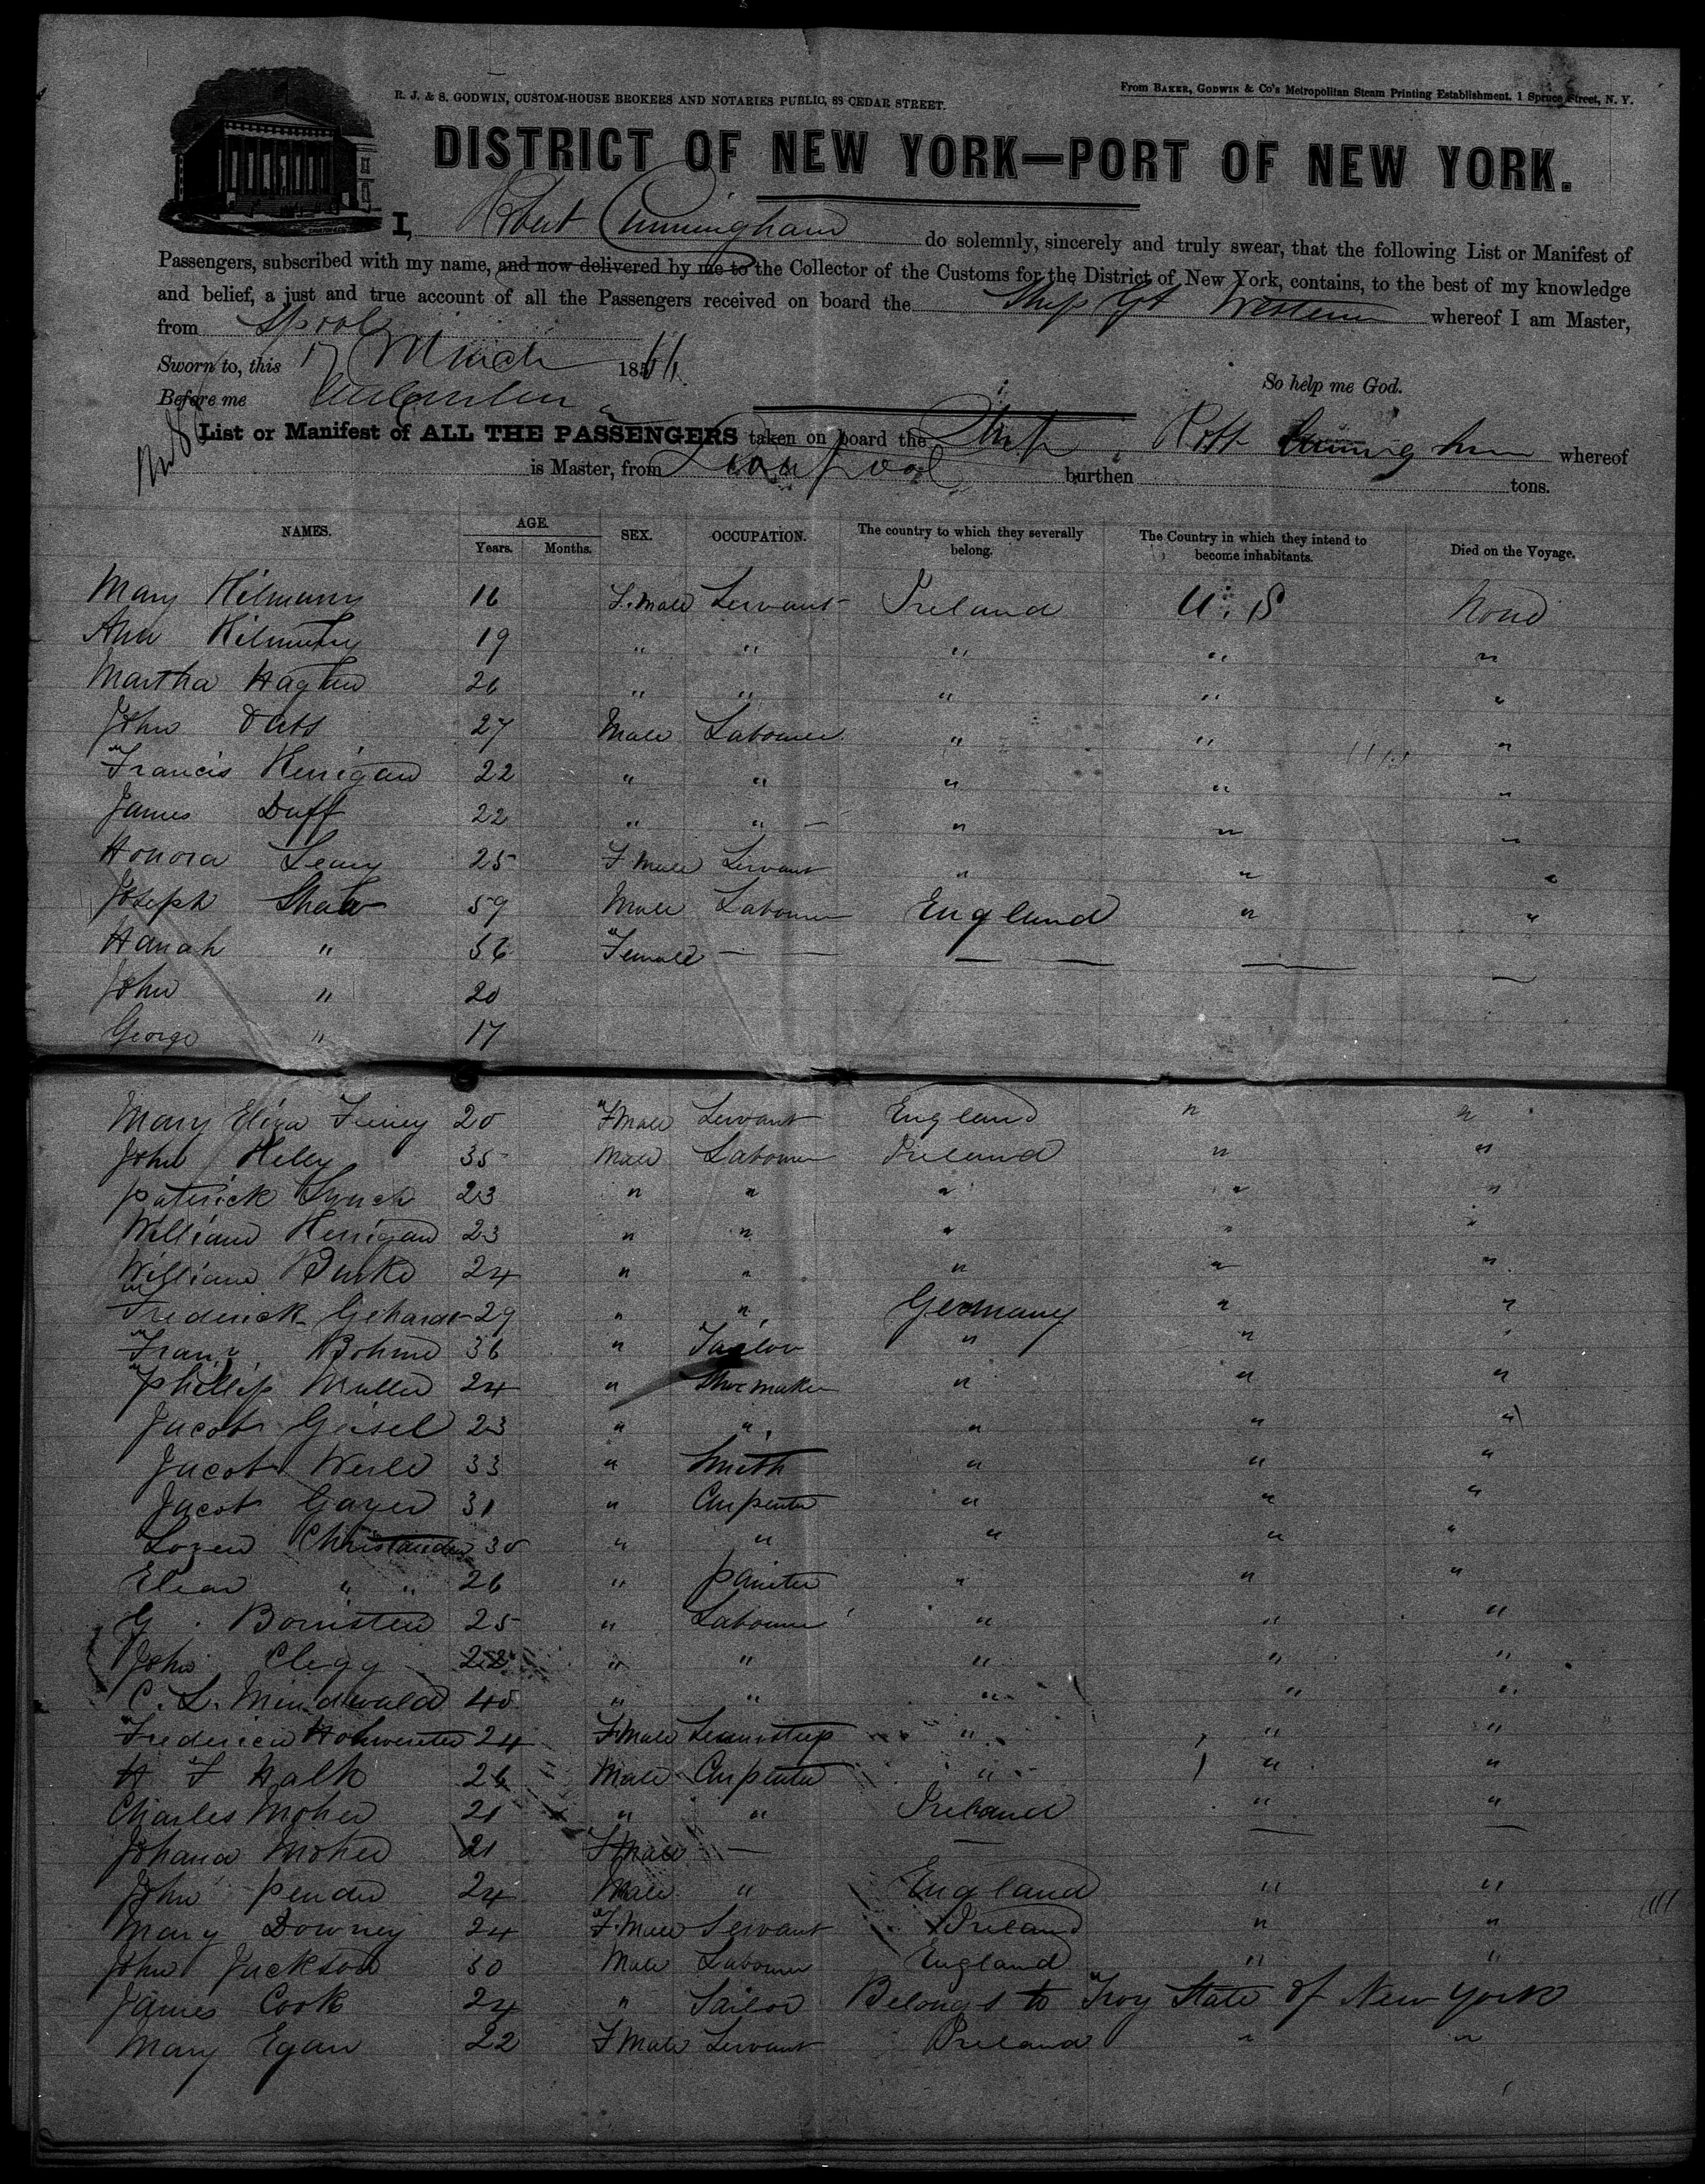 R. J. & S. GODWIN, CUSTOM-HOUSE BROKERS AND NOTARIES PUBLIC, 88 CEDAR STREET.
From BAKER, GODWIN & Co's Metropolitan Steam Printing Establishment, 1 Spruce Street, N. Y.
DISTRICT OF NEW YORK—PORT OF NEW YORK.
I, Robert Cunningham do solemnly, sincerely and truly swear, that the following List or Manifest of
Passengers, subscribed with my name, and now delivered by me to the Collector of the Customs for the District of New York, contains, to the best of my knowledge
and belief, a just and true account of all the Passengers received on board the Ship Gt Western whereof I am Master,
from Lpool
Sworn to, this 17 March 1861
So help me God.
Before me
List or Manifest of ALL THE PASSENGERS taken on board the Ship Robt Cunningham whereof
is Master, from Liverpool burthen tons.
NAMES. AGE. SEX. OCCUPATION. The country to which they severally belong. The Country in which they intend to become inhabitants. Died on the Voyage.
Years. Months.
Mary 16 F.male Servant Ireland U.S None
Ann 19 " " " " "
Martha 26 " " " " "
John 27 Male Labourer " " "
Francis Kerrigan 22 " " " " "
James Duff 22 " " " " "
Honora Leary 25 F male Servant " " "
Joseph Shaw 59 Male Labourer England " "
Hanah " 56 Female — — — — — —
John " 20
George " 17
Mary Eliza 20 Fmale Servant England " "
John Heley 35 Male Labourer Ireland " "
Paterick Lynch 23 " " " " "
William Kerrigan 23 " " " " "
William Burke 24 " " " " "
Frederick Gehardt 29 " " Germany " "
Franz Bohme 36 " Tailor " " "
Phillip Muller 24 " Shoemaker " " "
Jacob Geisel 23 " " " " "
Jacob 33 " Smith " " "
Jacob Gayer 31 " Carpenter " " "
30 " " " " "
" " 26 " Painter " " "
G. 25 " Labourer " " "
John Clegg 22 " " " " "
C. L. Mindwald 40 " " " " "
24 Fmale " " "
H F Walk 26 Male Carpenter " " "
Charles Moher 21 " " Ireland " "
Johana Moher 21 Fmale — — — —
John Pender 24 Male " England " "
Mary Downey 24 F.Male Servant Ireland " "
John Jackson 50 Male Labourer England " "
James Cook 24 " Sailor Belongs to Troy State of New York
Mary Egan 22 FMale Servant Ireland " "